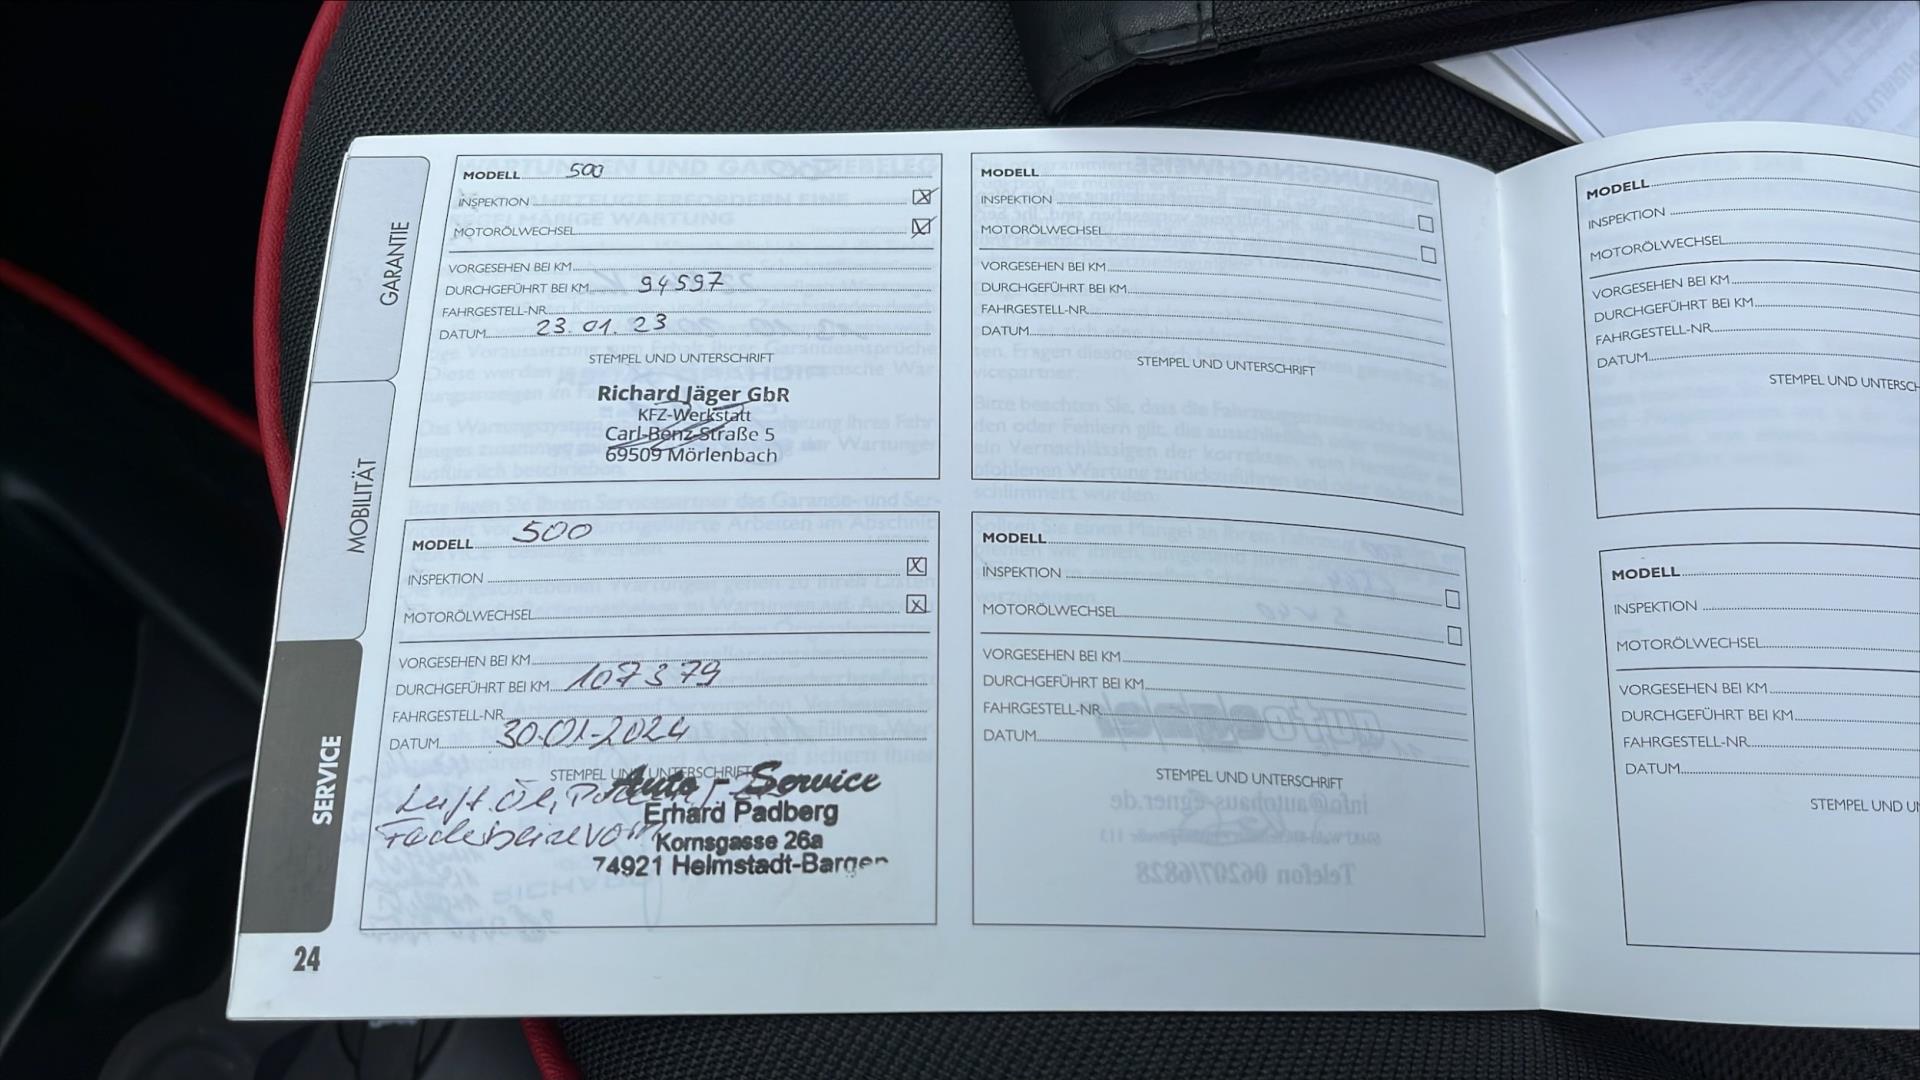 GARANTIE
MOBILITÄT
SERVICE
24
MODELL 500
INSPEKTION X
MOTORÖLWECHSEL X
VORGESEHEN BEI KM
DURCHGEFÜHRT BEI KM 94597
FAHRGESTELL-NR.
DATUM 23.01.23
STEMPEL UND UNTERSCHRIFT
Richard Jäger GbR
KFZ-Werkstatt
Carl-Benz-Straße 5
69509 Mörlenbach
MODELL 500
INSPEKTION X
MOTORÖLWECHSEL X
VORGESEHEN BEI KM
DURCHGEFÜHRT BEI KM 107379
FAHRGESTELL-NR.
DATUM 30-01-2024
STEMPEL UND UNTERSCHRIFT
Auto - Service
Luft. Öl,
Erhard Padberg
Kornsgasse 26a
74921 Helmstadt-Bargen
MODELL
INSPEKTION
MOTORÖLWECHSEL
VORGESEHEN BEI KM
DURCHGEFÜHRT BEI KM
FAHRGESTELL-NR.
DATUM
STEMPEL UND UNTERSCHRIFT
MODELL
INSPEKTION
MOTORÖLWECHSEL
VORGESEHEN BEI KM
DURCHGEFÜHRT BEI KM
FAHRGESTELL-NR.
DATUM
STEMPEL UND UNTERSCHRIFT
MODELL
INSPEKTION
MOTORÖLWECHSEL
VORGESEHEN BEI KM
DURCHGEFÜHRT BEI KM
FAHRGESTELL-NR.
DATUM
STEMPEL UND UNTERSCH
MODELL
INSPEKTION
MOTORÖLWECHSEL
VORGESEHEN BEI KM
DURCHGEFÜHRT BEI KM
FAHRGESTELL-NR.
DATUM
STEMPEL UND U